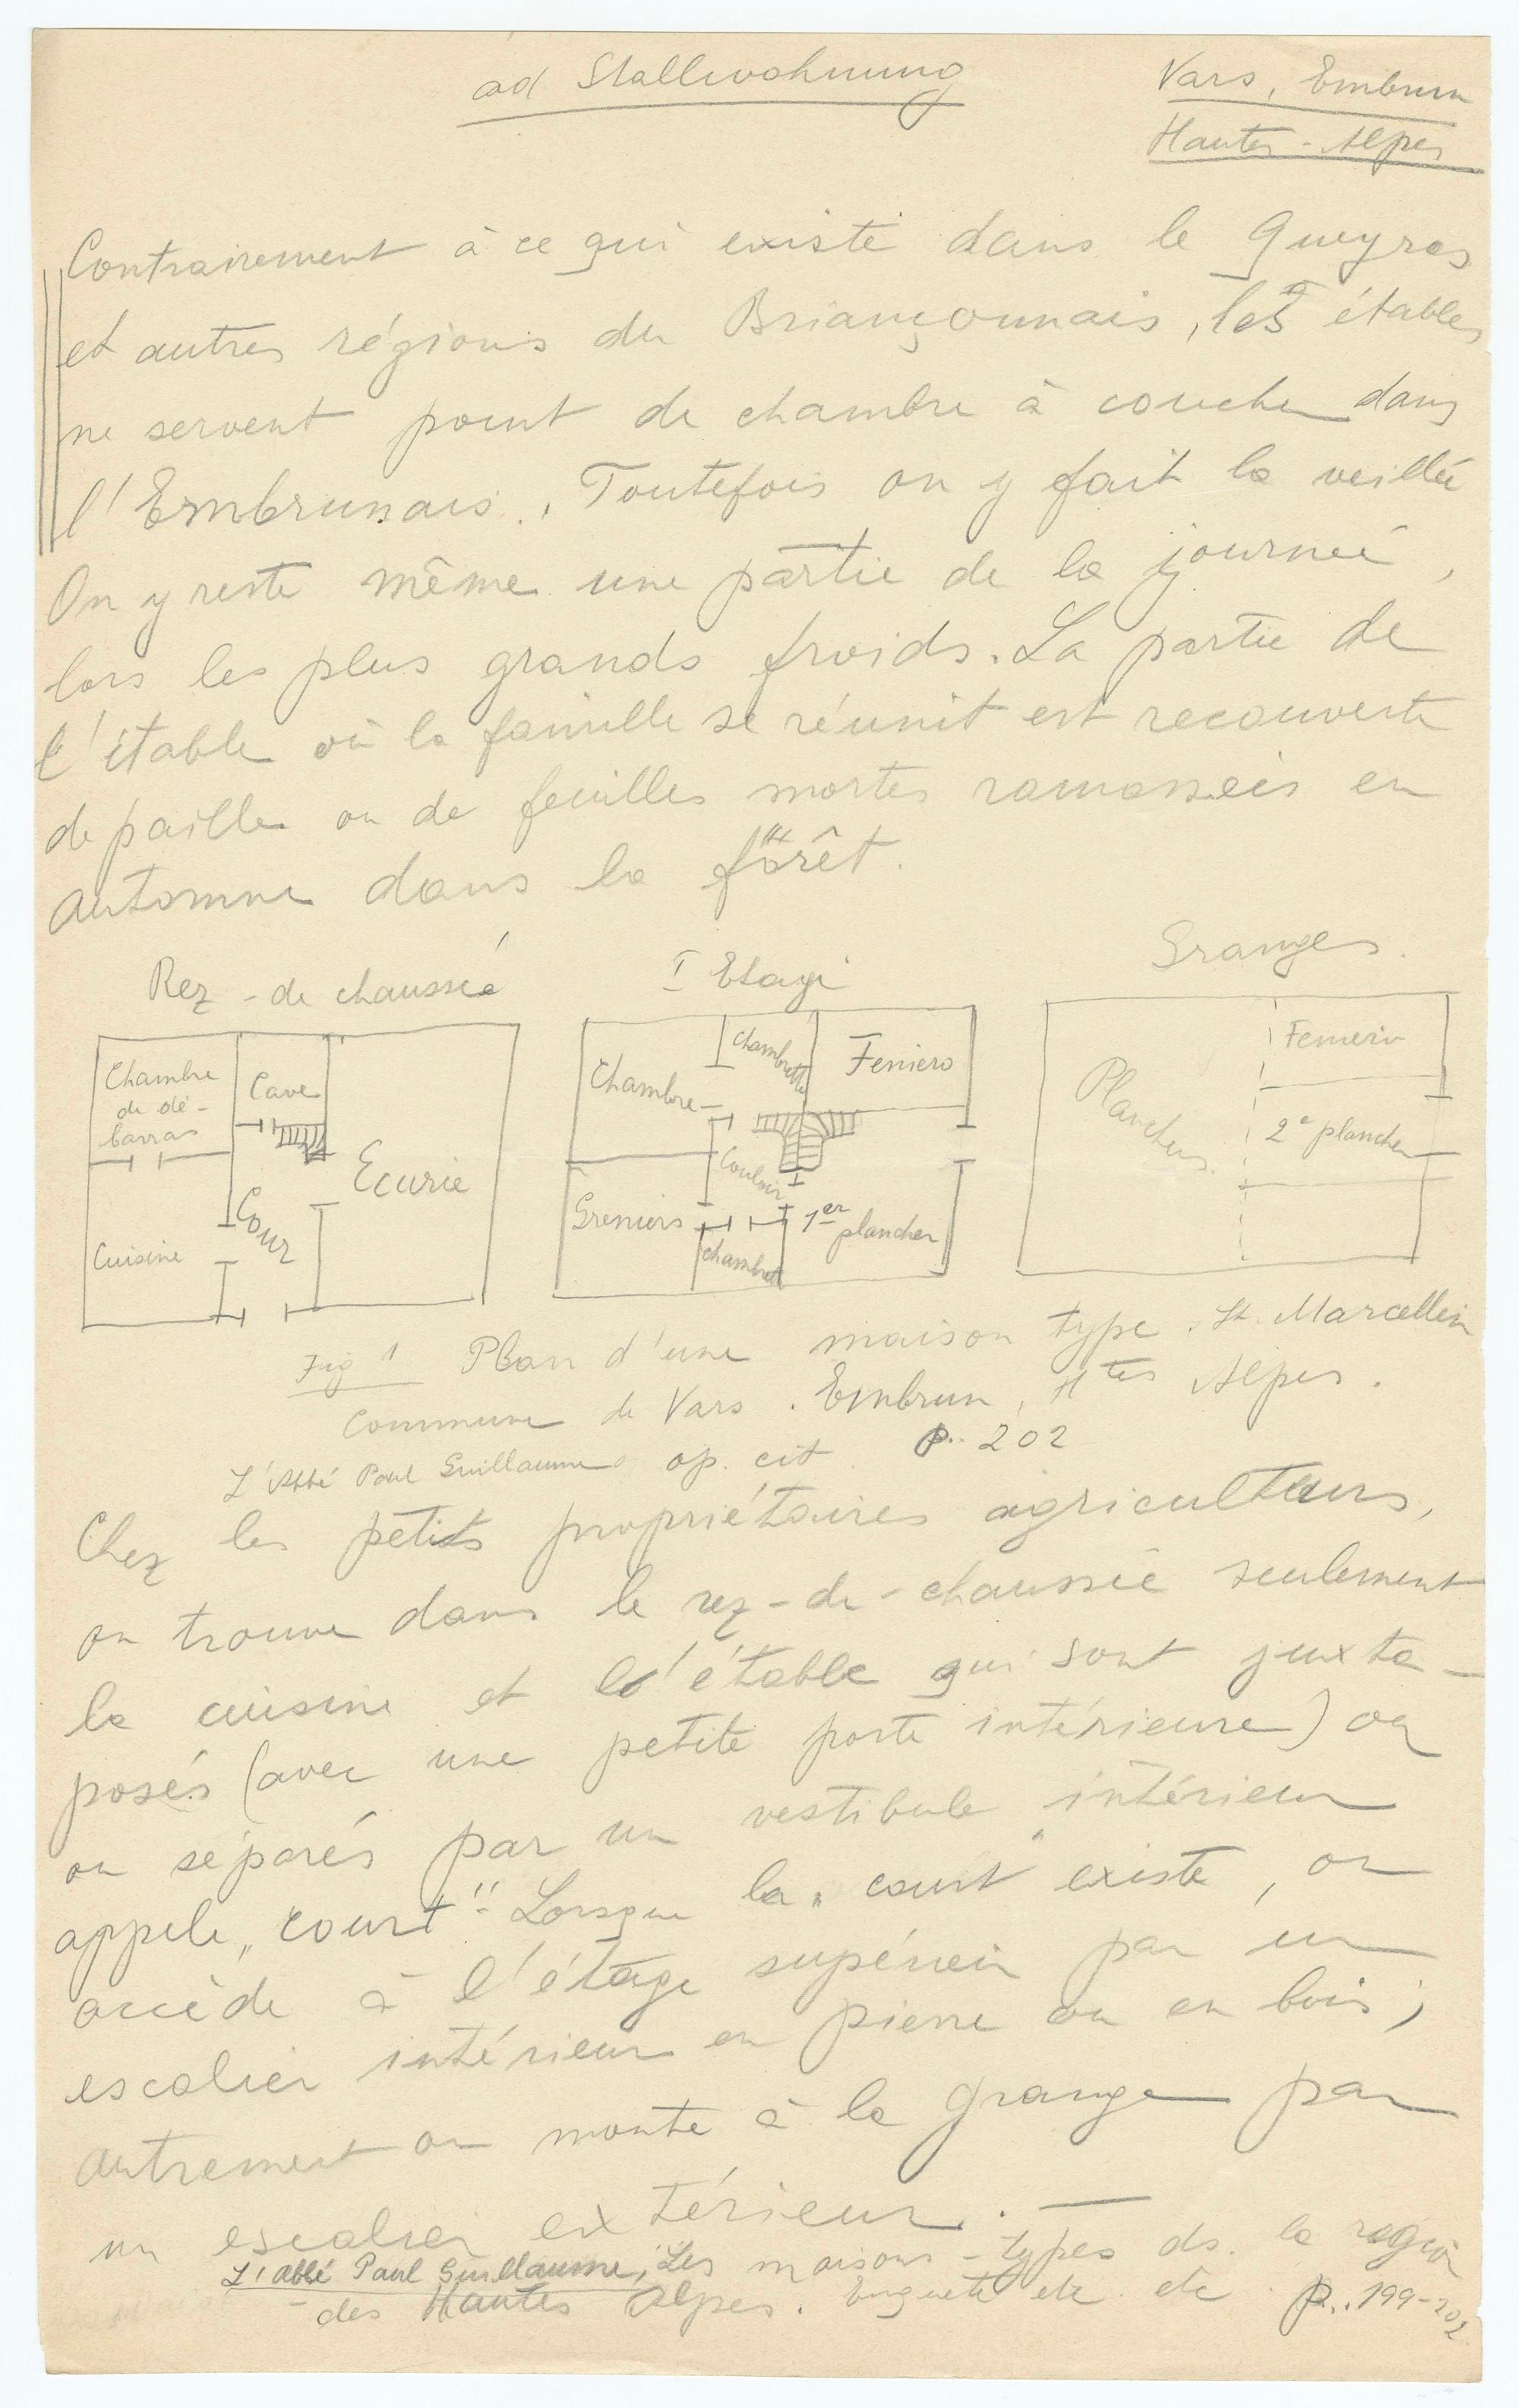 ad Stallwohnung
Vars, Embrun
Hautes-Alpes
Contrairement à ce qui existe dans le Queyras
et autres régions du Briançonnais, les étables
ne servent point de chambre à coucher dans
l'Embrunais. Toutefois on y fait la veillée
On y reste même une partie de la journée,
lors les plus grands froids. La partie de
l'étable où la famille se réunit est recouverte
de paille ou de feuilles mortes ramassées en
automne dans la forêt.
Rez-de chaussée
I Etage
Granges.
Chambre
de dé-
barras
Cave
Ecurie
Cour
Cuisine
Chambre
Chambrette
Feniero
Couloir
Greniers
1er plancher
chambrette
Planchers.
2e plancher
Fig 1 Plan d'une maison type. St. Marcellin
Commune de Vars. Embrun, Htes Alpes.
L'Abbé Paul Guillaume op. cit p. 202
Chez les petits propriétaires agriculteurs,
on trouve dans le rez-de-chaussée seulement
la cuisine et l'étable qui sont juxta-
posés (avec une petite porte intérieure) ou
ou séparés par un vestibule intérieur
appelé „court". Lorsque la „court" existe, on
accède à l'étage supérieur par un
escalier intérieur en pierre ou en bois;
autrement on monte à la grange par
un escalier extérieur. —
L'abbé Paul Guillaume, Les maisons-types ds. la région
des Hautes Alpes. Enquête etc etc p. 199-202